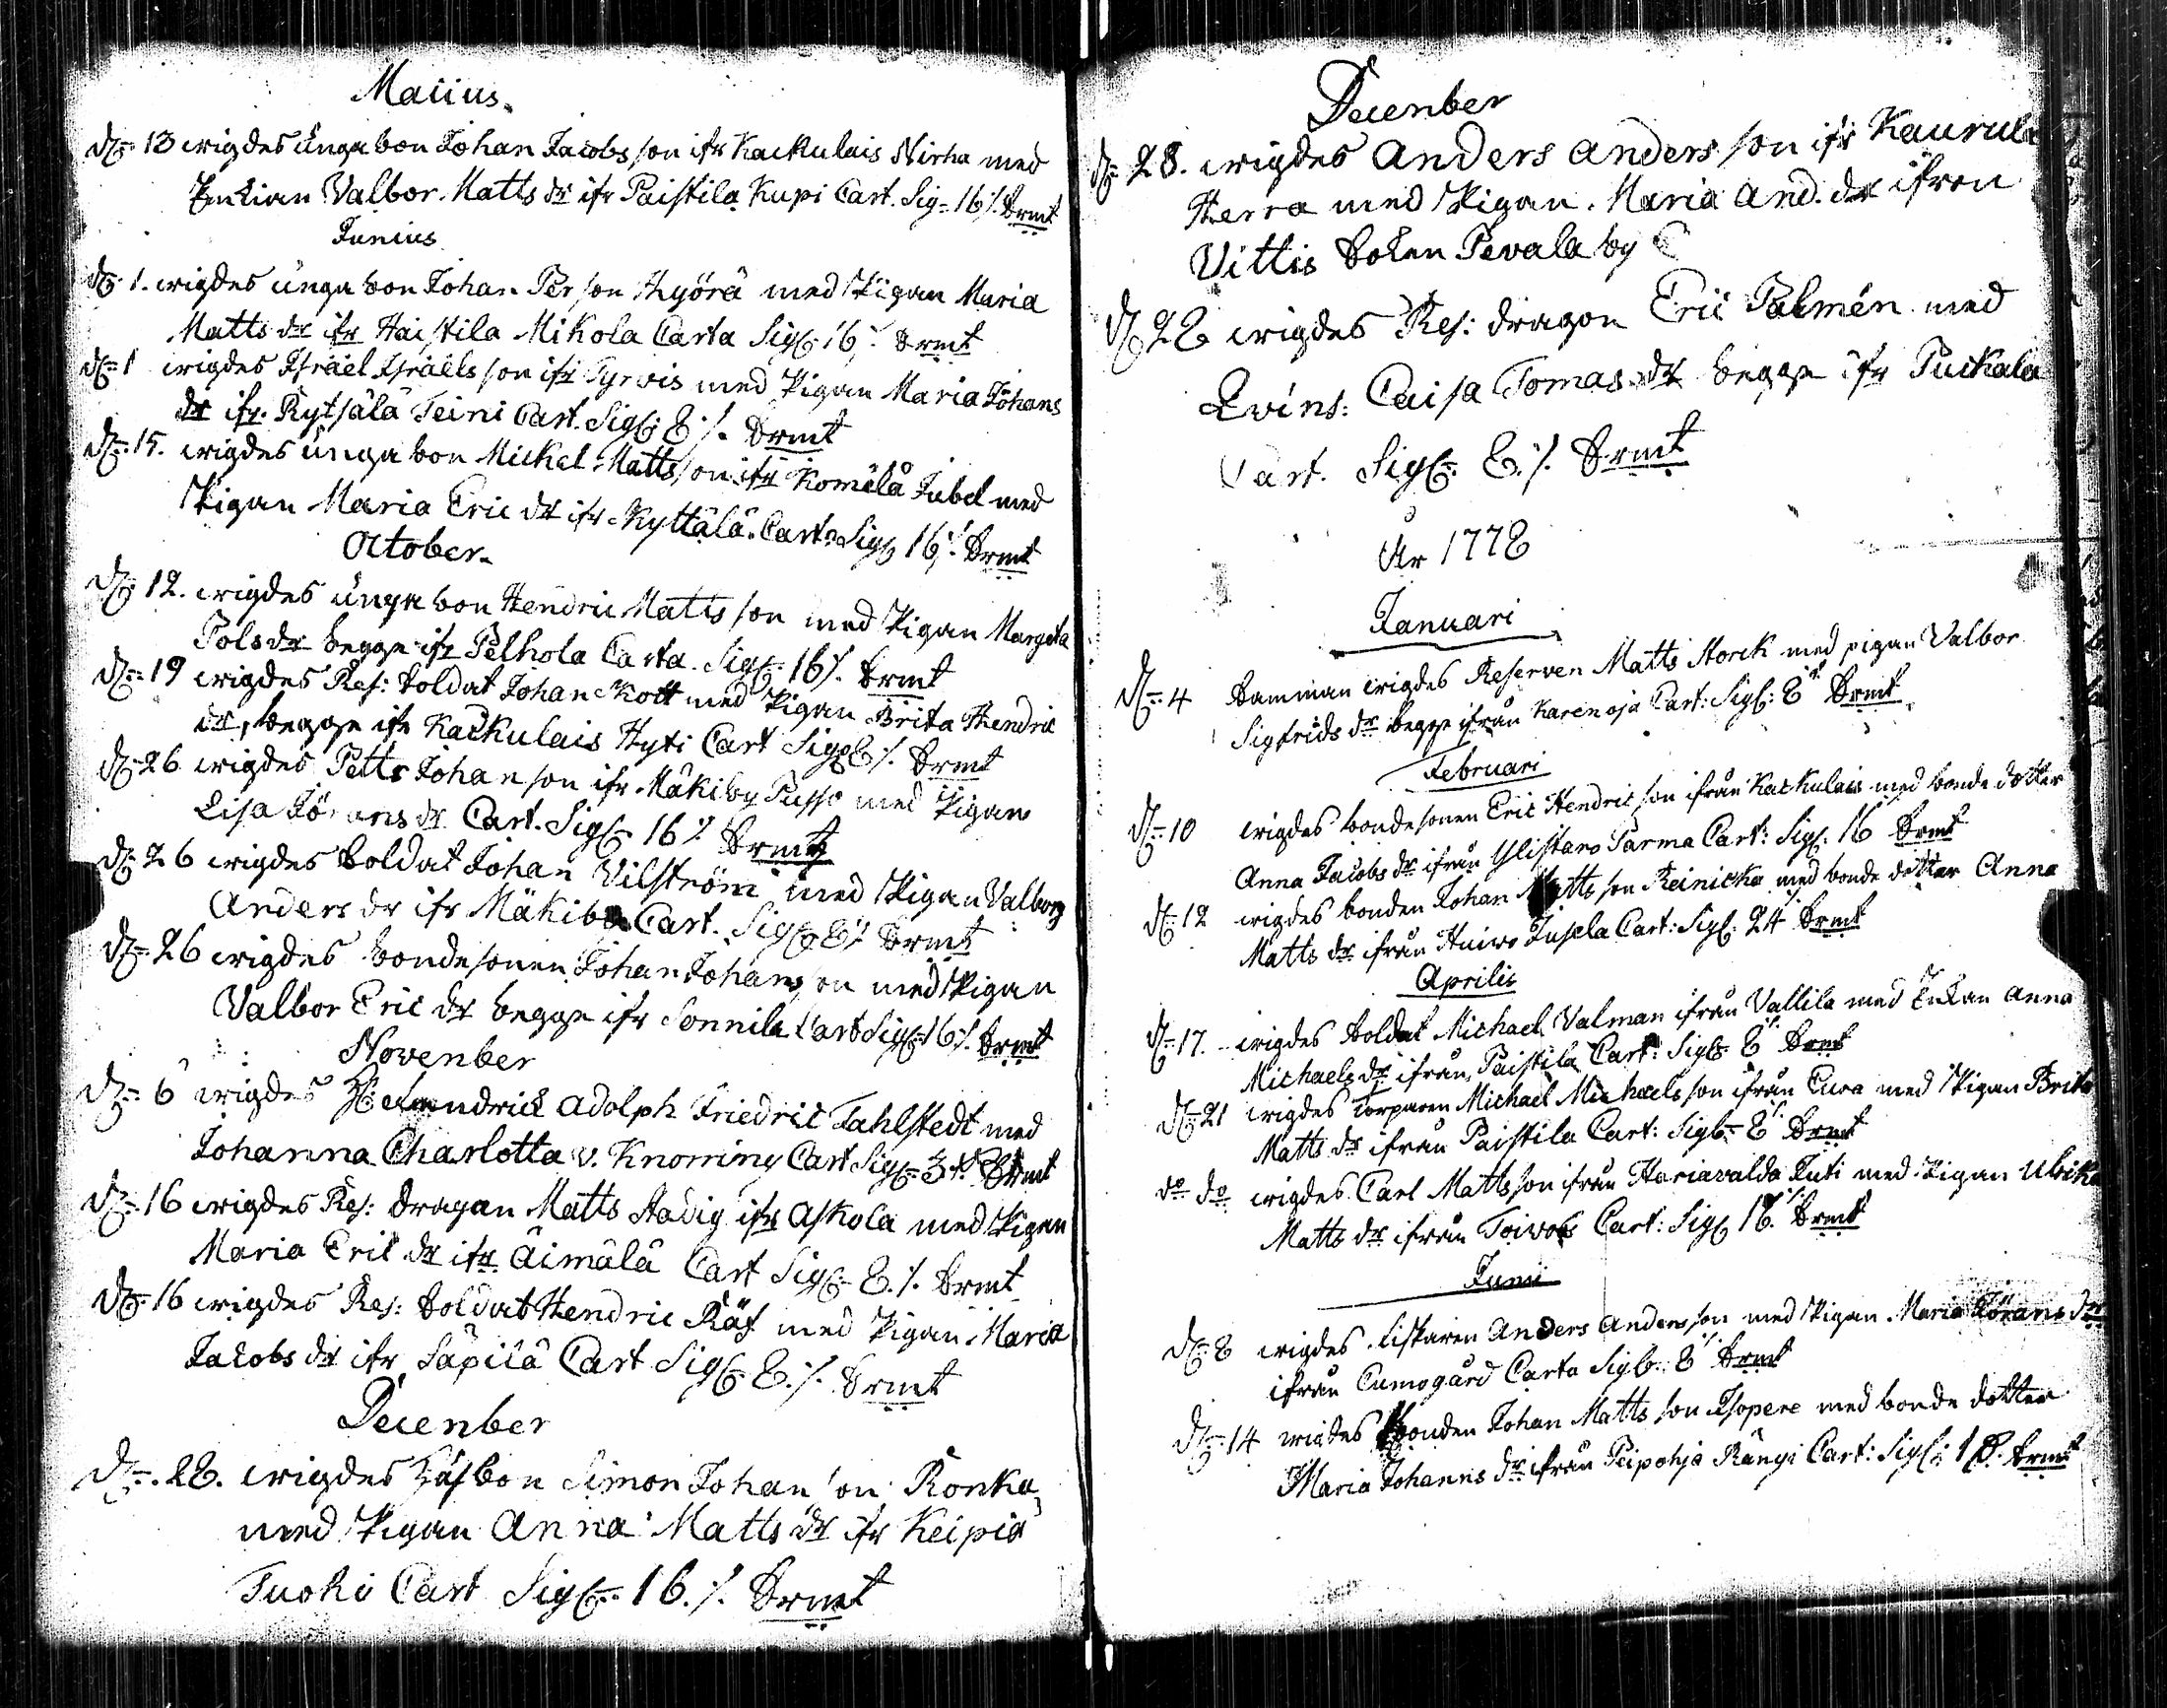 Maiius.
d. 13 wigdes unga bon Johan Jacobs son ifr Kackulais Nirha med
Enkian Valbor Matts dr ifr Paistila Kupi Cart. Sig. 16 ./. Srmt
Junius
d. 1. wigdes unga bon Johan Per son Hyörä med Pigan Maria
Matts dr ifr Haistila Mikola Carta Sig: 16 ./. Srmt
d. 1 wigdes Israel Israels son ifr Tyrvis med Pigan Maria Johans
dr ifr. Rytsälä Teini Cart. Sig: 8 ./. Srmt
d. 15. wigdes unga bon Mickel Matts son ifr Komälä Jubel med
Pigan Maria Eric dr ifr Kyttälä. Carta Sig 16 ./. Srmt
October.
d. 12. wigdes unga bon Hendric Matts son med Pigan Margeta
Pols dr begge ifr Pelhola Carta. Sig: 16 ./. Srmt
d. 19 wigdes Res: Soldat Johan Kott med Pigan Brita Hendric
dr, begge ifr Kackulais Hyti Cart Sig 8 ./. Srmt
d. 26 wigdes Petter Johan son ifr Mäkiby Pusso med Pigan
Lisa Jörans dr Cart. Sig: 16 ./. Srmt
d. 26 wigdes Soldat Johan Vilström med Pigan Valborg
Anders dr ifr Mäkiby Cart. Sig: 8 ./. Srmt
d. 26 wigdes bondesonen Johan Johans son med Pigan
Valbor Eric dr begge ifr Sonnila Cart Sig: 16 ./. Srmt
November
d. 6 wigdes Adolph Friedric Fahlstedt med
Johanna Charlotta v. Knorring Cart Sig: Srmt
d. 16 wigdes Res: Dragon Matts Stadig ifr Askola med Pigan
Maria Eric dr ifr Äimälä Cart Sig: 8 ./. Srmt
d. 16 wigdes Res: Soldat Hendric Räf med Pigan Maria
Jacobs dr ifr Säpilä Cart Sig: 8 ./. Srmt
December
d. 28. wigdes bon Simon Johan son Ronka
med Pigan Anna Matts dr ifr Keipiä
Tuoki Cart Sig: 16 ./. Srmt
December
d. 28. wigdes Anders Anders son ifr Kaurula
Herra med Pigan. Maria And. dr ifron
Vittis Soken Pevala by
d. 28 wigdes Res: dragon Eric Palmén med
Qvins: Caisa Tomas dr begge ifr Puckala
Cart. Sig: 8 ./. Srmt
År 1778
Januari
d. 4 Samman wigdes Reserven Matts Storck med pigan Valbor
Sigfrids dr begge ifrån Karenoja Cart: Sig: 8 Srmt
Februari
d. 10 wigdes bondesonen Eric Hendric son ifrån Kackulais med bonde dotter
Anna Jacobs dr ifrån Ylistaro Sarma Cart: Sig: 16 Srmt
d. 12 wigdes bonden Johan Matts son Reinicka med bonde dotter Anna
Matts dr ifrån Huivo Jusela Cart: Sig: 24 Srmt
Aprilis
d. 17. wigdes Soldat Michael Valman ifrån Vallila med Enkan Anna
Michaels dr ifrån Paistila Cart: Sig: 8 Srmt
d. 21 wigdes Torparen Michael Michaels son ifrån Eura med Pigan Brita
Matts dr ifrån Paistila Cart: Sig: 8 Srmt
do do wigdes Carl Matts son ifrån Hariavalda Juti med Pigan Ulrika
Matts dr ifrån Toivols Cart: Sig 16. Srmt
Juni
d. 8 wigdes Fiskaren Anders Anders son med Pigan Maria Jörans dr
ifrån Cumogård Carta Sig: 8 Srmt
d. 14 wigdes bonden Johan Matts son Isopere med bonde dotter
Maria Johanns dr ifrån Peipohja Rängi Cart: Sig: 16. Srmt